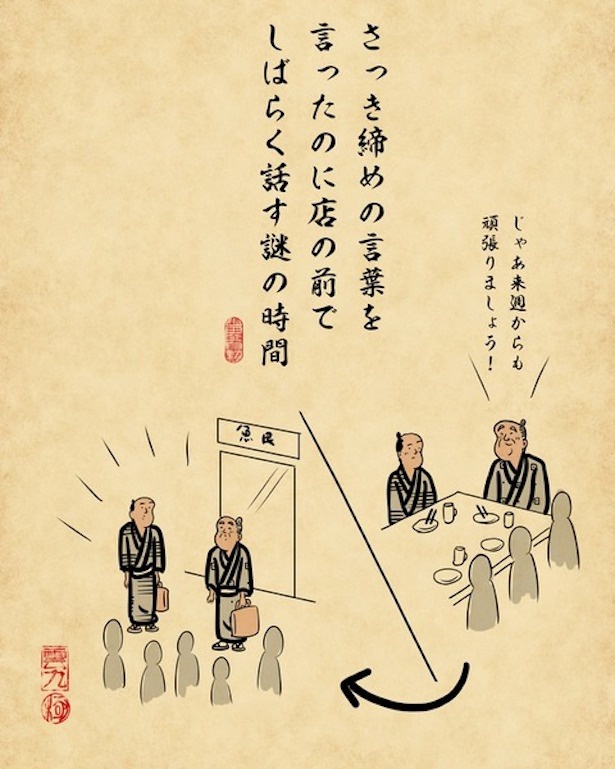 さっき締めの言葉を
言ったのに店の前で
しばらく話す謎の時間
じゃあ来週からも
頑張りましょう!
魚民